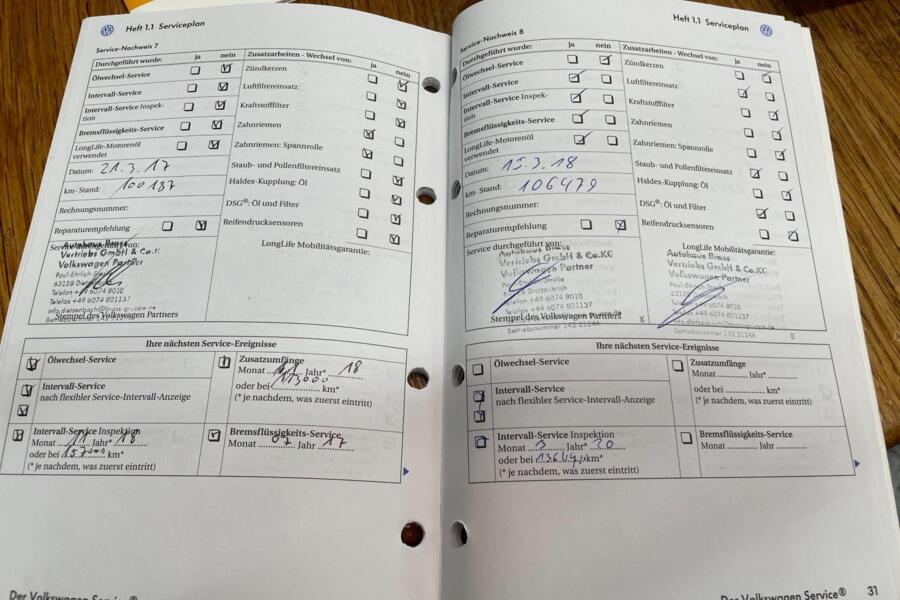 Heft 1.1 Serviceplan
Service-Nachweis 7
Durchgeführt wurde: ja nein
Ölwechsel-Service
Intervall-Service
Intervall-Service Inspektion
Bremsflüssigkeits-Service
LongLife-Motorenöl
verwendet
Datum: 21.3.17
km- Stand: 100 187
Rechnungsnummer:
Reparaturempfehlung
Service durchgeführt von:
Autohaus Brass
Vertriebs GmbH & Co.KG
Volkswagen Partner
Paul-Ehrlich-Straße
63128 Dietzenbach
Telefon +49 6074 8010
Telefax +49 6074 801137
Stempel des Volkswagen Partners
Zusatzarbeiten - Wechsel von: ja nein
Zündkerzen
Luftfiltereinsatz
Kraftstofffilter
Zahnriemen
Zahnriemen: Spannrolle
Staub- und Pollenfiltereinsatz
Haldex-Kupplung: Öl
DSG®: Öl und Filter
Reifendrucksensoren
LongLife Mobilitätsgarantie:
Ihre nächsten Service-Ereignisse
Ölwechsel-Service
Intervall-Service
nach flexibler Service-Intervall-Anzeige
Intervall-Service Inspektion
Monat Jahr* 18
oder bei km*
(* je nachdem, was zuerst eintritt)
Zusatzumfänge
Monat Jahr* 18
oder bei 113000 km*
(* je nachdem, was zuerst eintritt)
Bremsflüssigkeits-Service
Monat 07 Jahr 17
Der Volkswagen Service®
Heft 1.1 Serviceplan
Service-Nachweis 8
Durchgeführt wurde: ja nein
Ölwechsel-Service
Intervall-Service
Intervall-Service Inspek-
tion
Bremsflüssigkeits-Service
LongLife-Motorenöl
verwendet
Datum: 15.3.18
km- Stand: 106479
Rechnungsnummer:
Reparaturempfehlung
Service durchgeführt von:
Autohaus Brass
Vertriebs GmbH & Co.KG
Volkswagen Partner
63128 Dietzenbach
Telefon +49 6074 8010
Telefax +49 6074 801137
Stempel des Volkswagen Partners
Betriebsnummer 142 21246
Zusatzarbeiten - Wechsel von: ja nein
Zündkerzen
Luftfiltereinsatz
Kraftstofffilter
Zahnriemen
Zahnriemen: Spannrolle
Staub- und Pollenfiltereinsatz
Haldex-Kupplung: Öl
DSG®: Öl und Filter
Reifendrucksensoren
LongLife Mobilitätsgarantie:
Autohaus Brass
Vertriebs GmbH & Co.KG
Volkswagen Partner
Betriebsnummer 142 21246
Ihre nächsten Service-Ereignisse
Ölwechsel-Service
Intervall-Service
nach flexibler Service-Intervall-Anzeige
Intervall-Service Inspektion
Monat 3 Jahr* 20
oder bei km*
(* je nachdem, was zuerst eintritt)
Zusatzumfänge
Monat Jahr*
oder bei km*
(* je nachdem, was zuerst eintritt)
Bremsflüssigkeits-Service
Monat Jahr
Der Volkswagen Service® 31